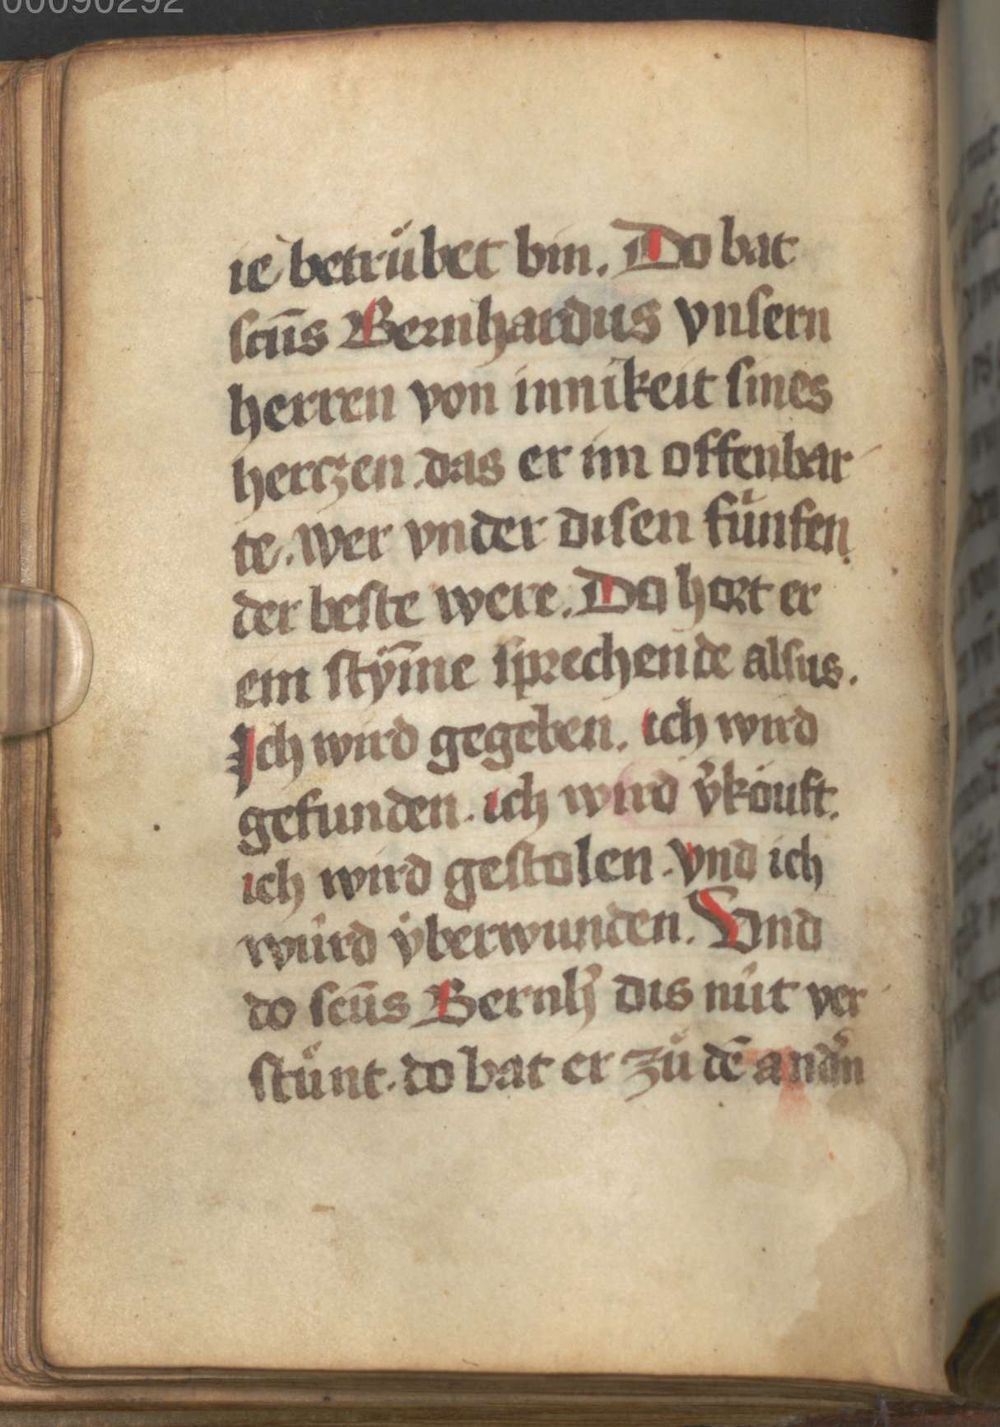 00090292
ie betrübet bin. Do bat
scūs Bernhardus vnsern
herren von innikeit sines
herczen. das er im offenbar
te. wer vnder disen fünfen
der beste were. Do hort er
ein stȳme sprechende alsus.
Ich wird gegeben. ich wird
gefunden. ich wird v̉kouft.
ich wird gestolen. vnd ich
würd v̇berwunden. Vnd
do scūs Bernh̉ dis nüt ver
stünt. do bat er zů dē and̉n